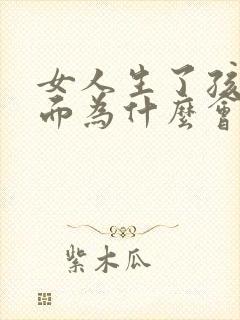 女人生了孩
而為什麼會
紫木瓜